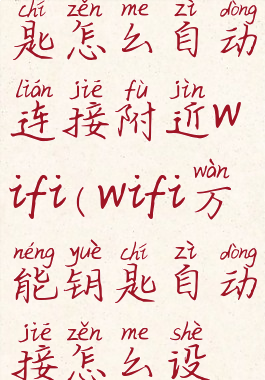 chí zěn me zì dòng
匙怎么自动
lián jiē fù jìn
连接附近w
wàn
ifi(wifi万
néng yuè chí zì dòng
能钥匙自动
jiē zěn me shè
接怎么设